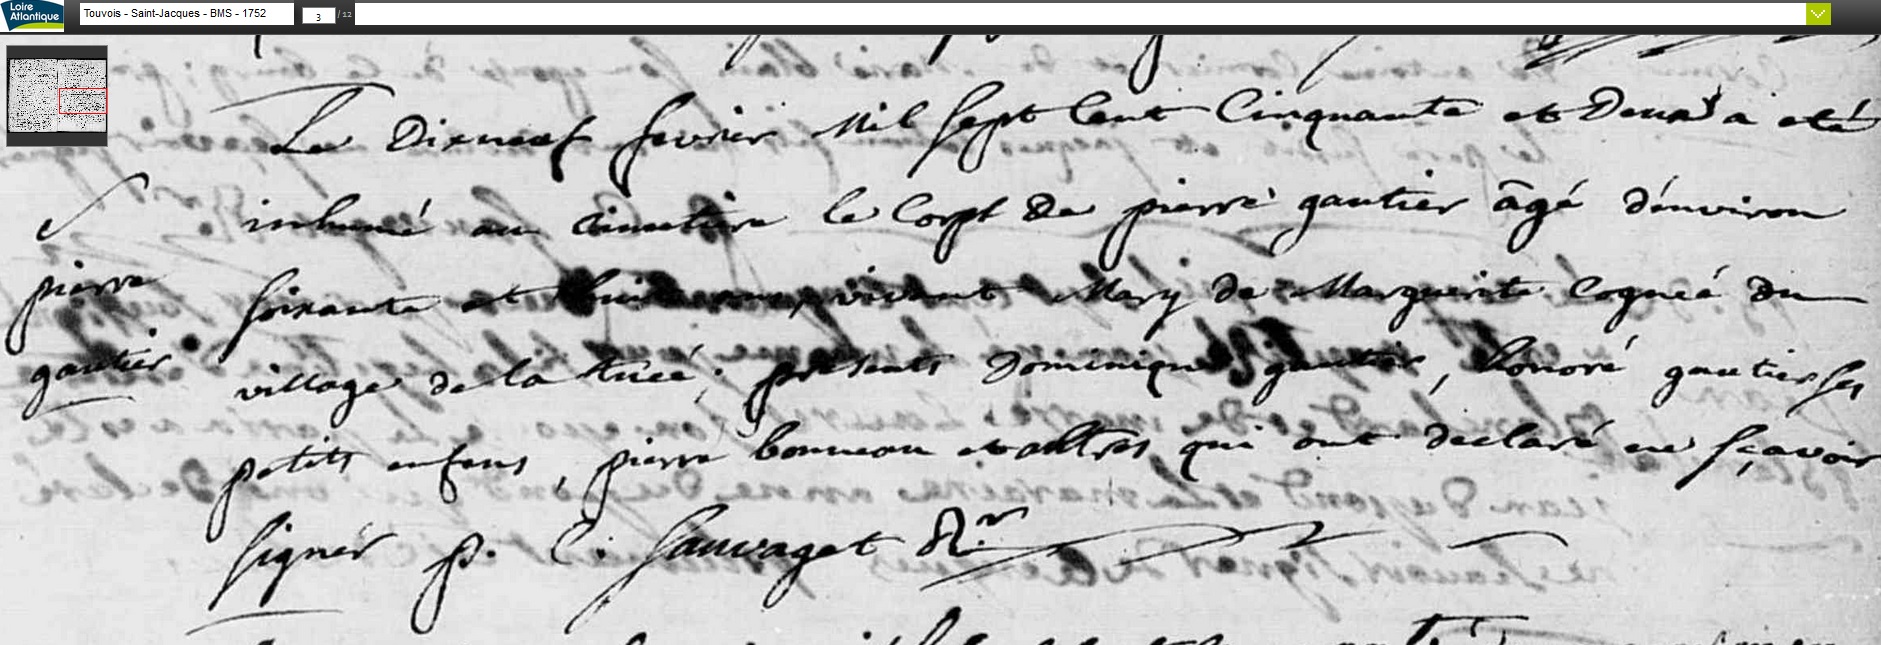 Loire
Atlantique
Touvois - Saint-Jacques - BMS - 1752
3 / 12
Le Dixneuf fevrier Mil sept Cent Cinquante et Deux a eté
inhumé au cimetiere le Corps De pierre gautier âgé d'environ
pierre
soixante et huit ans, vivant Mary de Marguerite Cogneé du
gautier
village de la trieé; presents Dominique gautier, honoré gautier ses
petits enfens, pierre bonneau et aultres qui ont declaré ne sçavoir
signer p. C. Sauvaget Rr.